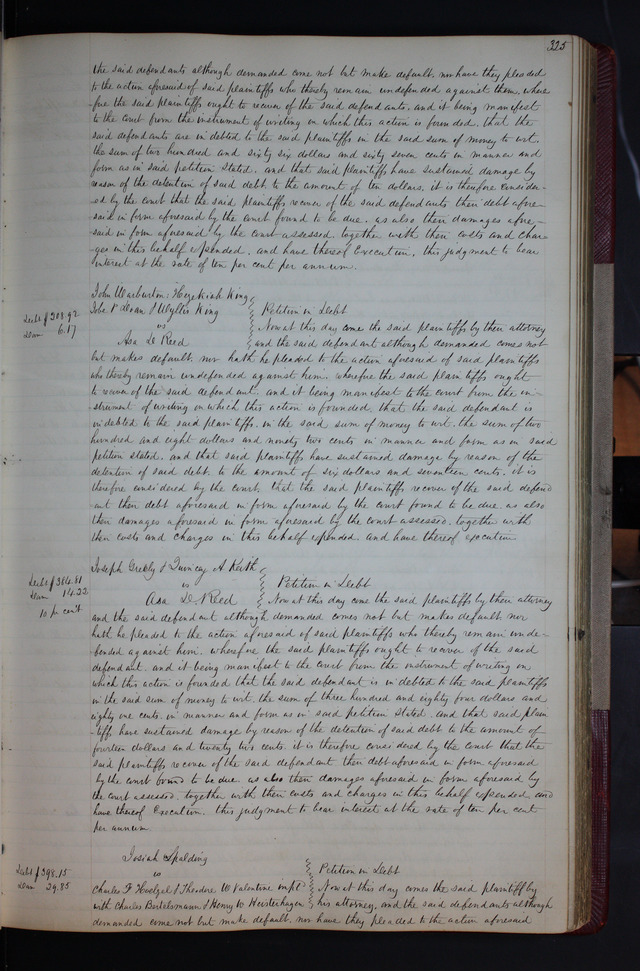 325
the said defendants although demanded come not but make default, nor have they pleaded
to the action aforesaid of said plaintiffs who thereby remain undefended against them, where
fore the said plaintiffs ought to recover of the said defendants, and it being manifest
to the court from the instrument of writing on which this action is founded, that the
said defendants are indebted to the said plaintiffs in the said sum of money to wit,
the sum of two hundred and sixty six dollars and sixty seven cents in manner and
form as in said petition stated, and that said plaintiffs have sustained damage by
reason of the detention of said debt to the amount of ten dollars, it is therefore consider-
ed by the court that the said plaintiffs recover of the said defendants their debt afore-
said in form aforesaid by the court found to be due, as also their damages afore-
said in form aforesaid by the court assessed, together with their costs and char-
ges in this behalf expended, and have thereof Execution, this judgment to bear
interest at the rate of ten per cent per annum.
John Warburton, Hezekiah King
Debt $208.92
Dam 6.17
& Wyllis King
Petition in Debt
vs
Now at this day come the said plaintiffs by their attorney
Asa D Reed
and the said defendant although demanded comes not
but makes default, nor hath he pleaded to the action aforesaid of said plaintiffs
who thereby remain undefended against him, wherefore the said plaintiffs ought
to recover of the said defendant, and it being manifest to the court from the in-
strument of writing on which this action is founded, that the said defendant is
indebted to the said plaintiffs, in the said sum of money to wit, the sum of two
hundred and eight dollars and ninety two cents in manner and form as in said
petition stated, and that said plaintiffs have sustained damage by reason of the
detention of said debt, to the amount of six dollars and seventeen cents, it is
therefore considered by the court, that the said plaintiffs recover of the said defend
ant their debt aforesaid in form aforesaid by the court found to be due, as also
their damages aforesaid in form aforesaid by the court assessed, together with
their costs and charges in this behalf expended, and have thereof execution
Joseph Greely & Quincy A Keith
Debt $384.81
Dam 14.22
10 pr cent
vs
Petition in Debt
Asa D Reed
Now at this day come the said plaintiffs by their attorney
and the said defendant although demanded comes not but makes default, nor
hath he pleaded to the action aforesaid of said plaintiffs who thereby remain unde-
fended against him, wherefore the said plaintiffs ought to recover of the said
defendant, and it being manifest to the court from the instrument of writing on
which this action is founded that the said defendant is indebted to the said plaintiffs
in the said sum of money to wit, the sum of three hundred and eighty four dollars and
eighty one cents, in manner and form as in said petition stated, and that said plain
tiffs have sustained damage by reason of the detention of said debt to the amount of
fourteen dollars and twenty two cents, it is therefore considered by the court that the
said plaintiffs recover of the said defendant their debt aforesaid in form aforesaid
by the court found to be due, as also their damages aforesaid in form aforesaid by
the court assessed, together with their costs and charges in this behalf expended and
have thereof Execution, this judgment to bear interest at the rate of ten per cent
per annum
Josiah Spalding
Debt $398.15
Dam 29.85
vs
Petition in Debt
Charles F Hoelzel & Theodore W Valentine impl
Now at this day comes the said plaintiff by
with Charles Bertelsmann & Henry W
his attorney, and the said defendants although
demanded come not but make default, nor have they pleaded to the action aforesaid